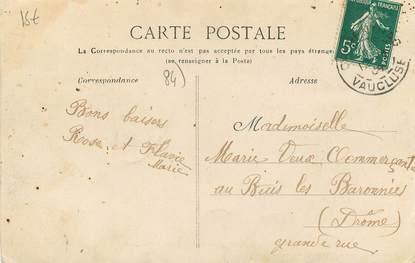 15€
CARTE POSTALE
La Correspondance au recto n'est pas acceptée par tous les pays étrangers
(se renseigner à la Poste)
Correspondance
84)
Adresse
5c
POSTES
VAUCLUSE
Bons baisers
Rose et Flavie
Marie
Mademoiselle
Marie Veux Commerçante
au Buis les Baronnies
(Drôme)
grande rue